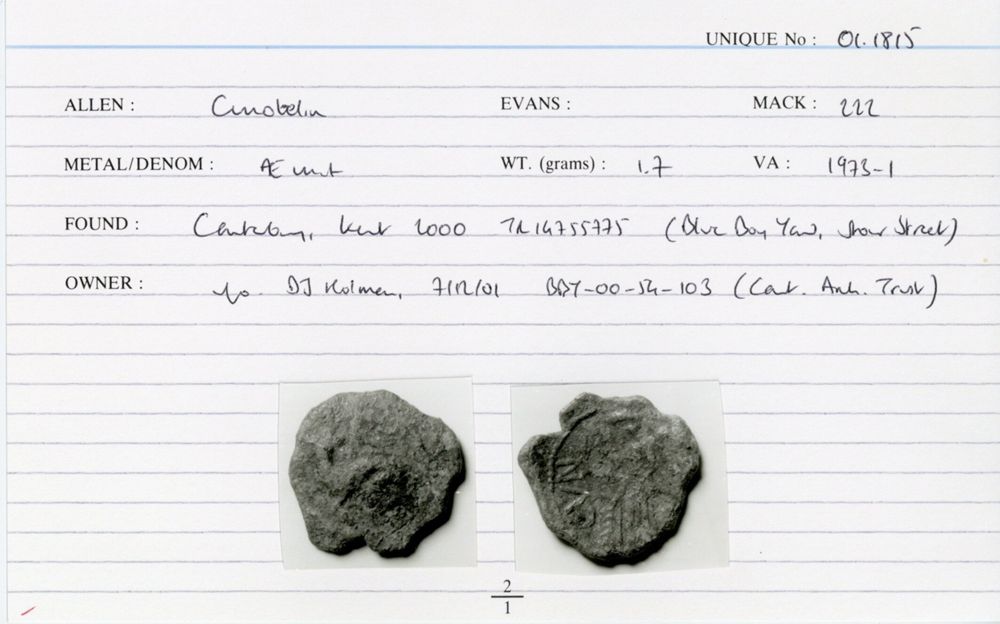 UNIQUE No : 01.1815
ALLEN : Cunobelin EVANS : MACK : 222
METAL/DENOM : Æ unit WT. (grams) : 1.7 VA : 1973-1
FOUND : Canterbury, Kent 2000 TR14755775 (Blue Boy Yard, Stour Street)
OWNER : DJ Holman, 7/12/01 BBY-00-54-103 (Cant. Arch. Trust)
2
1